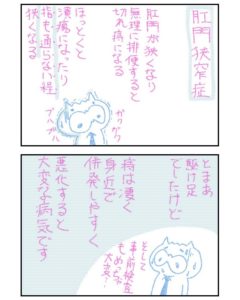 肛門狭窄症
肛門が狭くなり
無理に排便すると
切れ痔になる
ほっとくと
潰瘍になったり
指も通らない程
狭くなる
ガクガク
ブルブル
とまあ
駆け足
でしたけど
痔は凄く
身近で
併発しやすく
悪化すると
大変な病気です
そして
事前検査
もめっちゃ
大変!